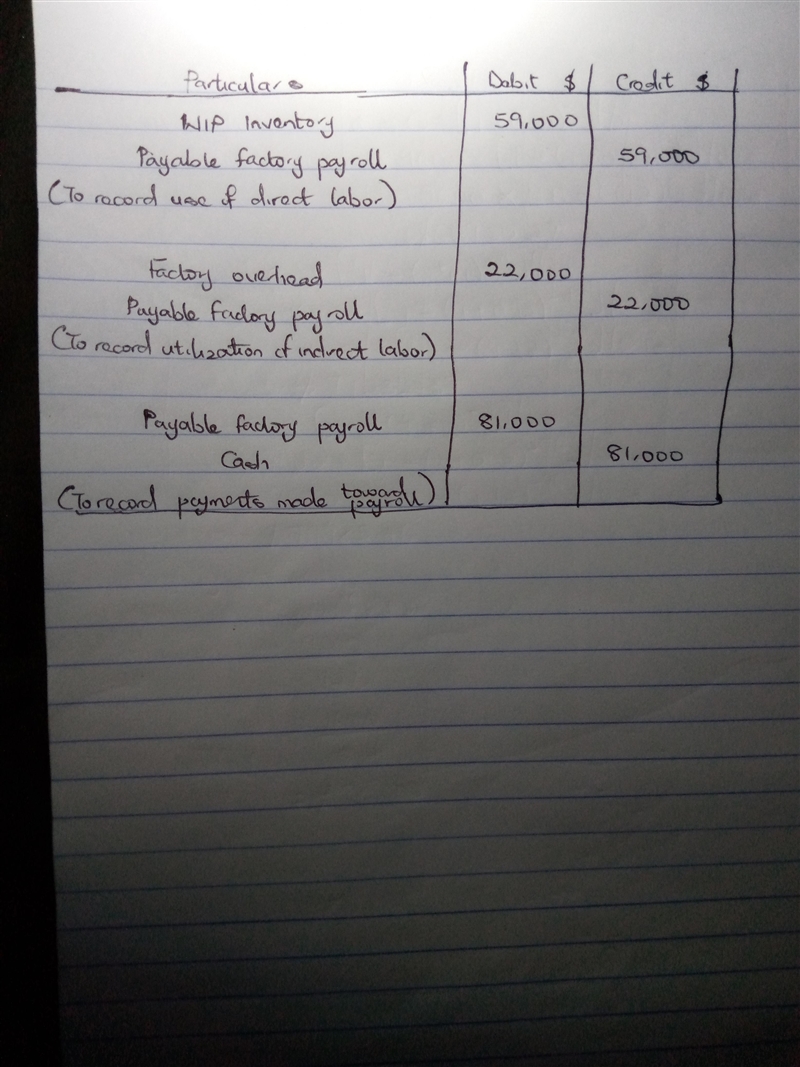 Particulars Debit $ Credit $
WIP Inventory 59,000
Payable factory payroll 59,000
(To record use of direct labor)
Factory overhead 22,000
Payable factory payroll 22,000
(To record utilization of indirect labor)
Payable factory payroll 81,000
Cash 81,000
(To record payments made towards payroll)